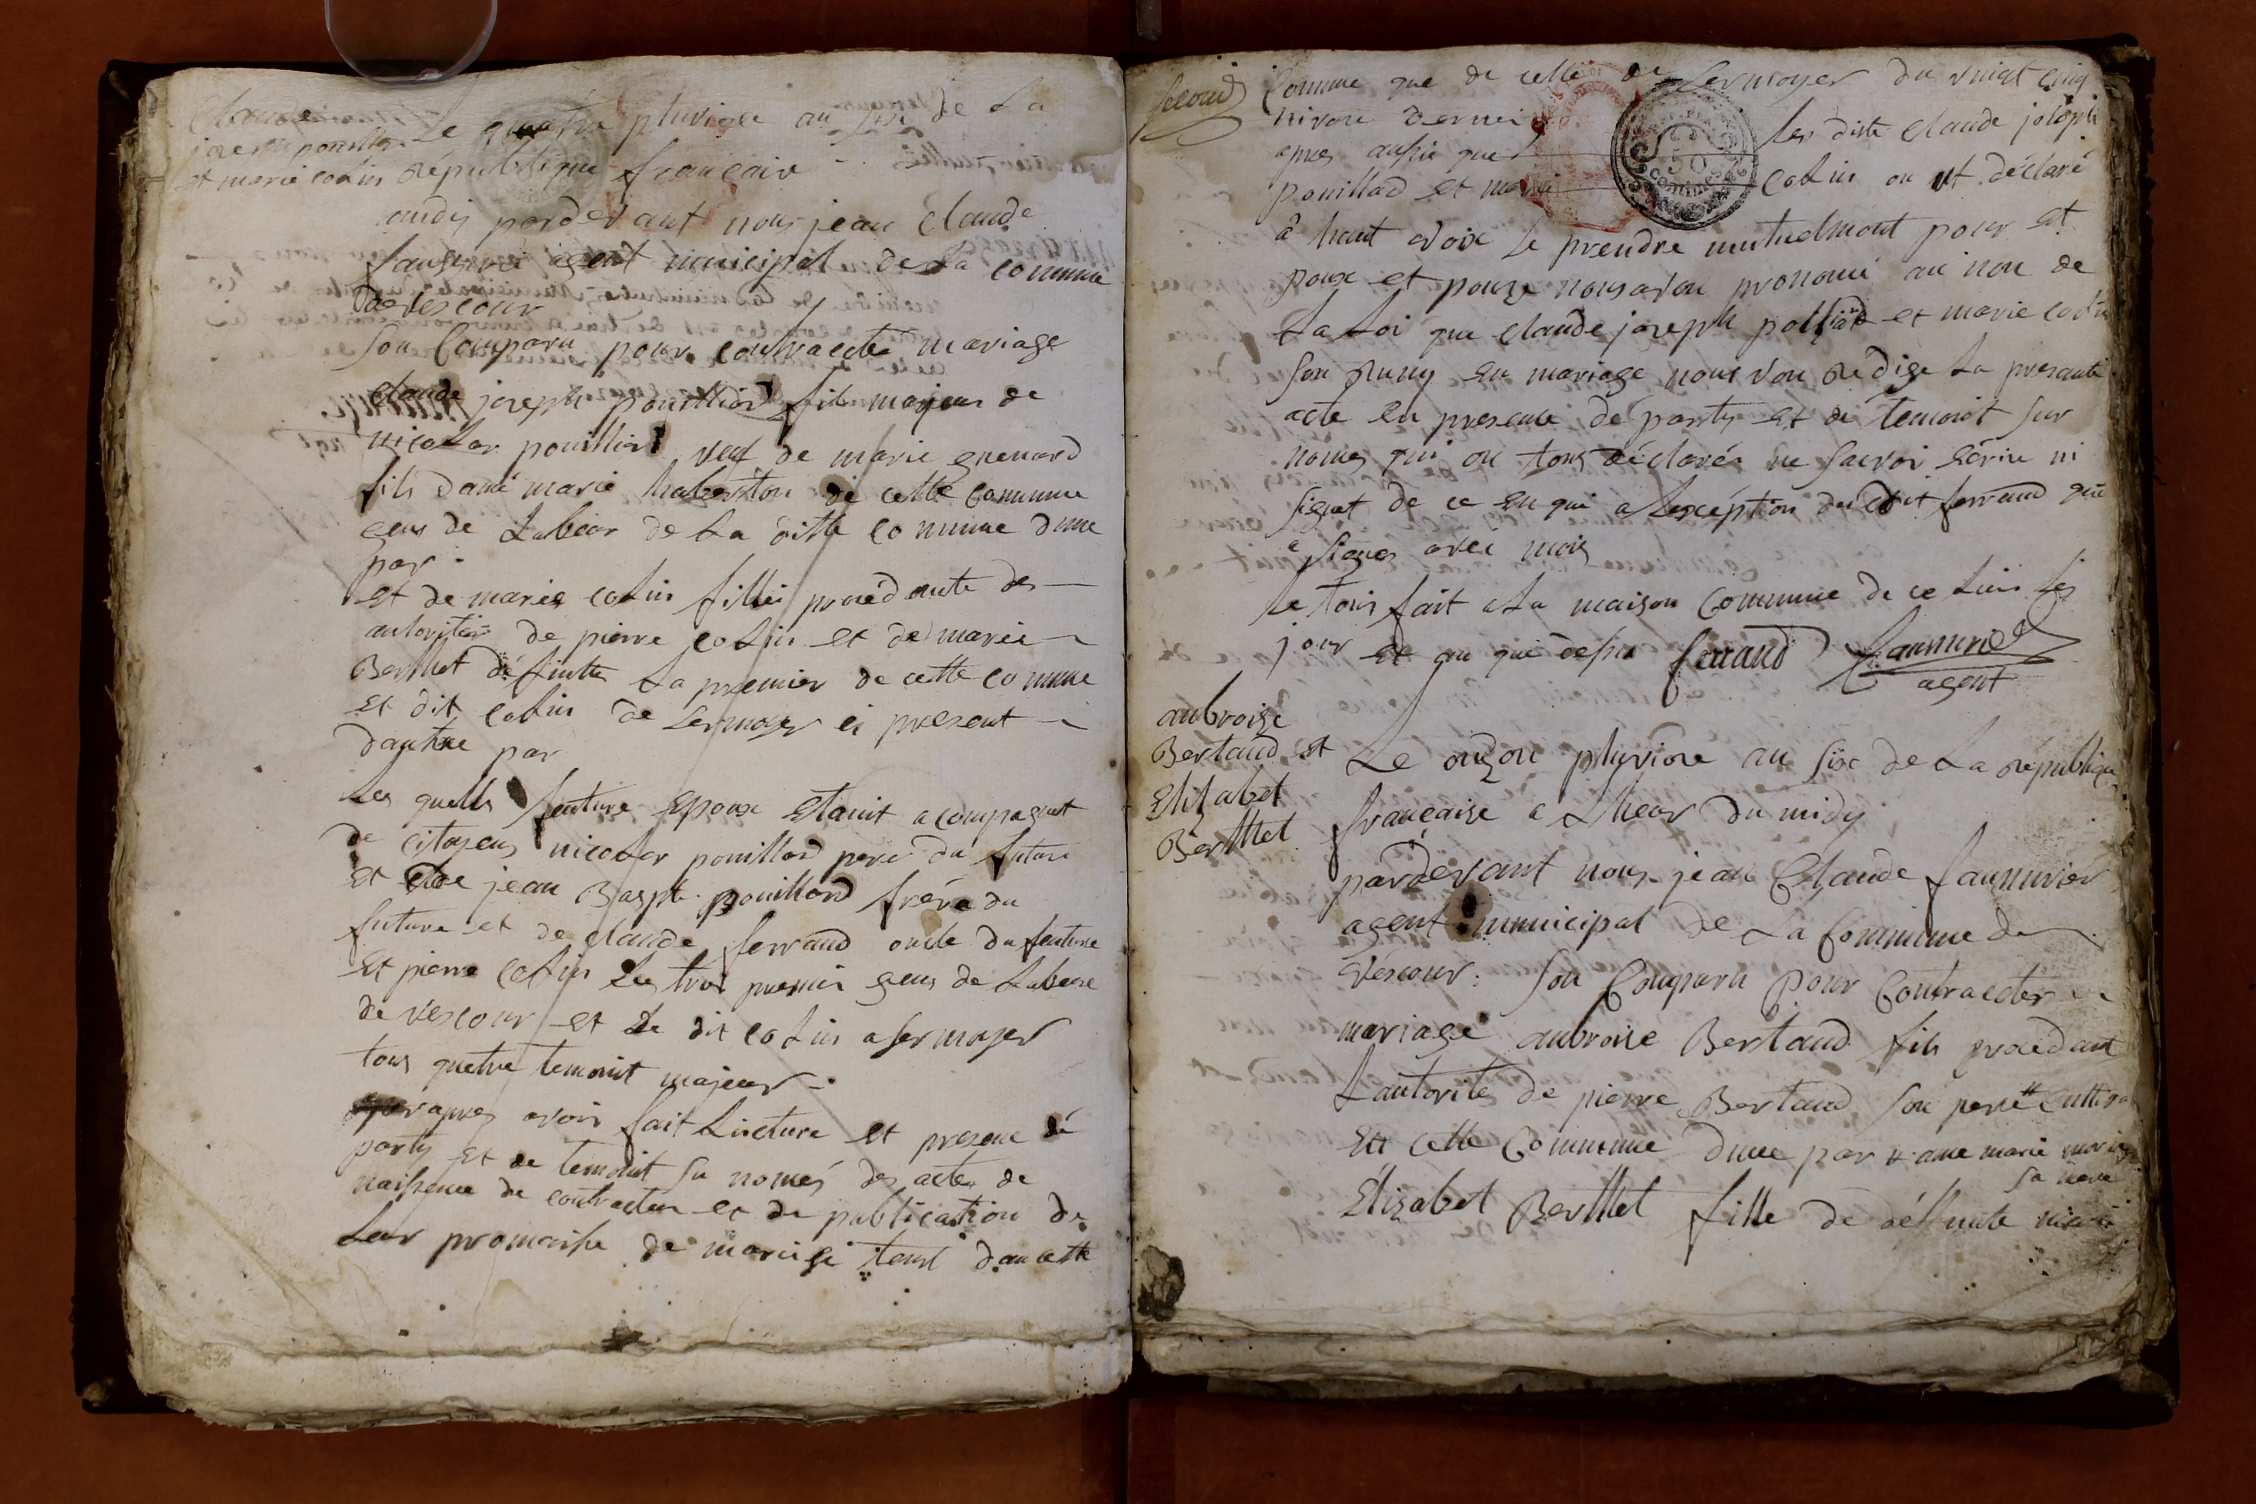 Claude
joseph pouillard
et marie colin
Le quatre pluviose an six de La
république française
midy pardevant nous jean claude
faussurié agent municipal de La commune
de vescour
son Comparu pour contracte mariage
claude joseph pouilliard fils majeur de
nicolas pouilliard veuf de marie guenard
fils dane marie haberton de cette commune
gens de Labeor de La ditte commune dune
par
et de marie colin fille procedante des
autorités de pierre colin et de marie
Berthet défunte La premier de cette commune
et dit colin de sermoyer ci present
dautre par
Les quells future epoux etaint acompagnet
de citoyens nicolas pouillard pere du future
et de jean Bapt pouillard frére du
future et de claude ferrand oncle du future
et pierre colin Les trois premier gens de Labeur
de vescour et Le dit colin a sermoyer
tous quatre temoint majeur
apres avoir fait Lecture et presence dé
party et de temoint su només des actes de
naissence de contracter et de publication de
Leur promaisse de mariage tent dan cette
second
Commune que de celle de sermoyer du vingt cinq
nivose dernie
apres aussie que les dits claude joseph
pouillad et marie colin on et déclaré
a haut voix Le prendre mutuelmont pour et
poux et pouze nous avon prononcé au non de
La Loi que claude joseph polliard et marie colin
son runy en mariage nous von rédige La presante
acte en presence de party et de temoint sur
només qui on tous déclarés ne savoir écrire ni
signet de ce en qui a Lexception du dit ferrand qui
a signer avec mois
Le tous fait a La maison commune de ce Lieu Les
jour et an que dessus ferrand faussurié
agent
anbroise
Bertaud et
Elizabet
Berthet
Le onzon pluviose an six de La république
française a Lheor du midy
pardevant nous jean Claude faussurier
agent municipal de La Commune de
vescour: son Comparu pour Contracter
mariage anbroise Bertaud fils procedant
Lautorité de pierre Bertaud son pere #
en cette Commune dune par # ane marie
sa mere
Elizabet Berthet fille de défunte
50